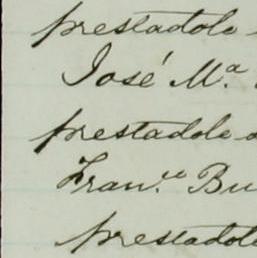 prestadolo
José M.ª
prestadole
Fran.co Bu
prestadole